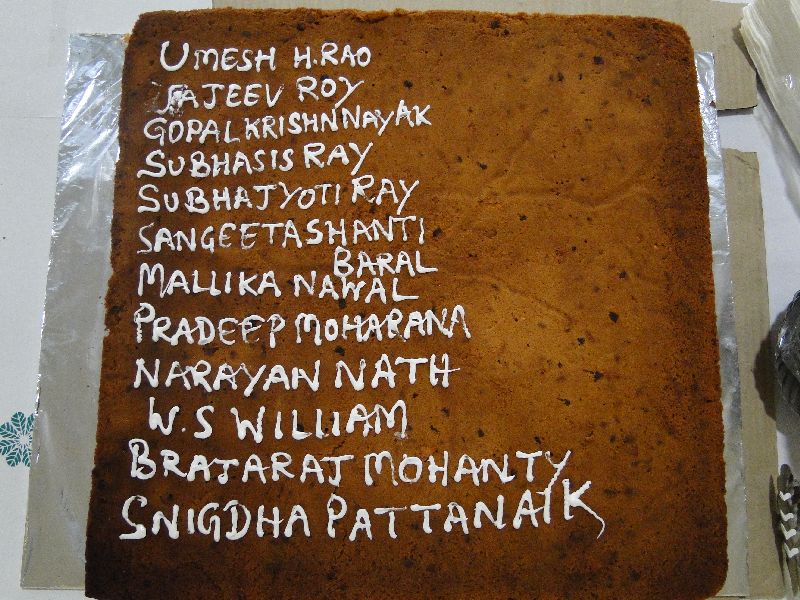 UMESH H.RAO
RAJEEV ROY
GOPALKRISHNNAYAK
SUBHASIS RAY
SUBHAJYOTI RAY
SANGEETASHANTI
BARAL
MALLIKA NAWAL
PRADEEP MOHARANA
NARAYAN NATH
W.S WILLIAM
BRAJARAJ MOHANTY
SNIGDHA PATTANAIK